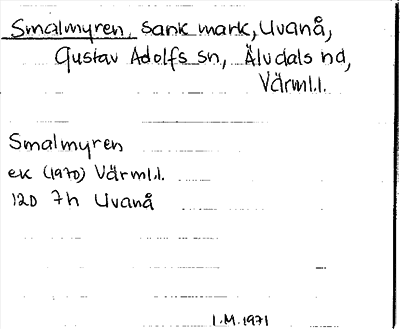 Smalmyren, sank mark, Uvanå,
Gustav Adolfs sn, Älvdals hd,
Värml.l.
Smalmyren
ek (1970) Värml.l.
12D 7h Uvanå
I.M. 1971